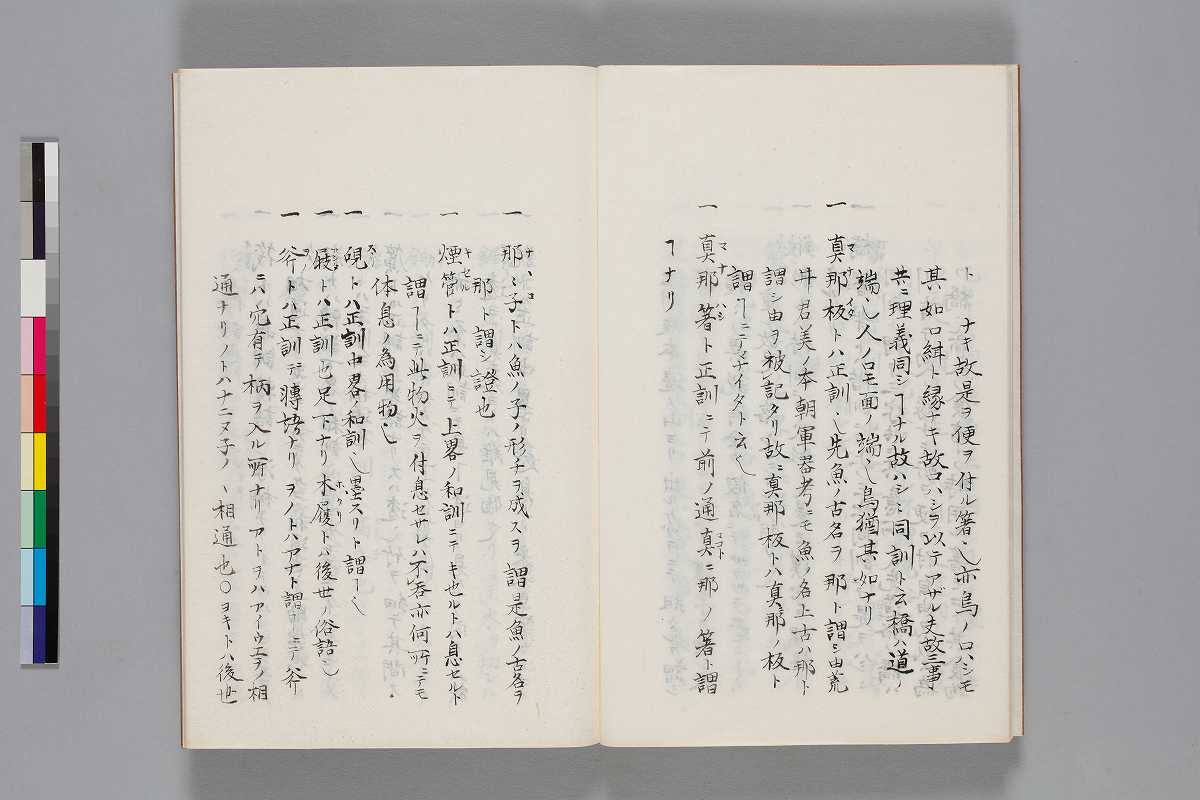 ト ナキ故是ヲ便ヲ付ル箸〆亦鳥ノロハシモ
其如ロ緯ト縁ナキ故ロハシヲ以テアザル支故三事
共ニ理義同シヿナル故ハシミ同訓ト云橋ハ道ノ
端〆人ノ口モ面ノ端〆鳥猶其如ナリ
一 真那板トハ正訓〆先魚ノ古名ヲ那ト謂シ由荒
井君美ノ本朝軍器考ニモ魚ノ名上古ハ那ト
謂シ由ヲ被記タリ故ニ真那板トハ真那ノ板ト
謂ヿニテマナイタト云〆
一 真那箸ト正訓ニテ前ノ通真ニ那ノ箸ト謂
ヿナリ
一 那〻子トハ魚ノ子ノ形チヲ成スヲ謂是魚ノ古名ヲ
那ト謂シ證也
一 煙管トハ正訓ニテ上畧ノ和訓ニテキセルトハ息セルト
謂ヿニテ此物火ヲ付息セサレハ不呑亦何所ニテモ
体息ノ為用物〆
一 硯トハ正訓中畧ノ和訓〆墨スリト謂ヿ〆
一 屐トハ正訓也足下ナリ木履トハ後世ノ俗語〆
一 斧トハ正訓ニテ轉語ナリ ヲノトハアナト謂ヿニテ斧
ニハ穴有テ柄ヲ入ル所ナリアトヲハアイウエヲノ相
通ナリノトハナニヌ子ノヽ相通也〇ヨキトハ後世